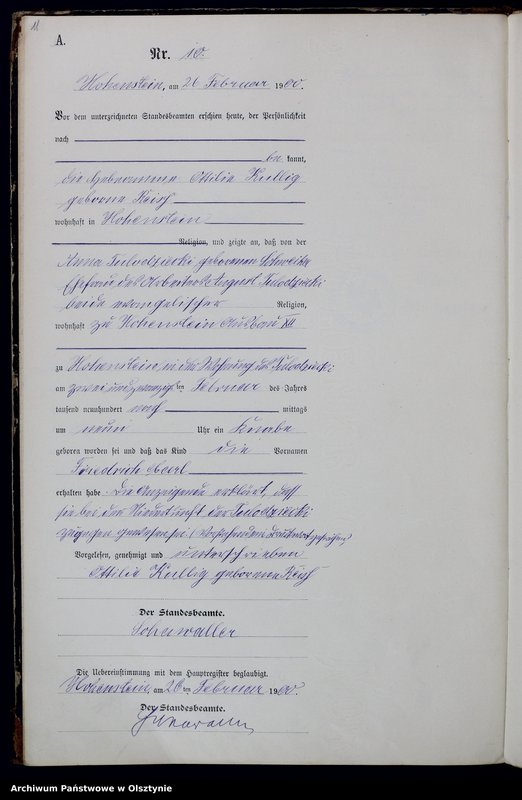 11
A.
Nr. 10.
Hohenstein, am 26 Februar 1900.
Vor dem unterzeichneten Standesbeamten erschien heute, der Persönlichkeit
nach
be kannt,
die Hebeamme Ottilie Kullig
geborne Reich
wohnhaft in Hohenstein
Religion, und zeigte an, daß von der
Anna geborenen
Ehefrau des Arbeiters August
beide evangelischer Religion,
wohnhaft zu Hohenstein Ausbau XII
zu Hohenstein, in der Wohnung des
am zwei und zwanzig ten Februar des Jahres
tausend neunhundert nach mittags
um neun Uhr ein Knabe
geboren worden sei und daß das Kind die Vornamen
Friedrich Karl
erhalten habe. Die Anzeigende erklärt, daß
sie bei der Niederkunft der
zugegen gewesen sei. (Vorstehendes Druckwort gestrichen)
Vorgelesen, genehmigt und unterschrieben
Ottilie Kullig geborne Reich
Der Standesbeamte.
Die Uebereinstimmung mit dem Hauptregister beglaubigt.
Hohenstein, am 26 ten Februar 1900.
Der Standesbeamte.
Archiwum Państwowe w Olsztynie